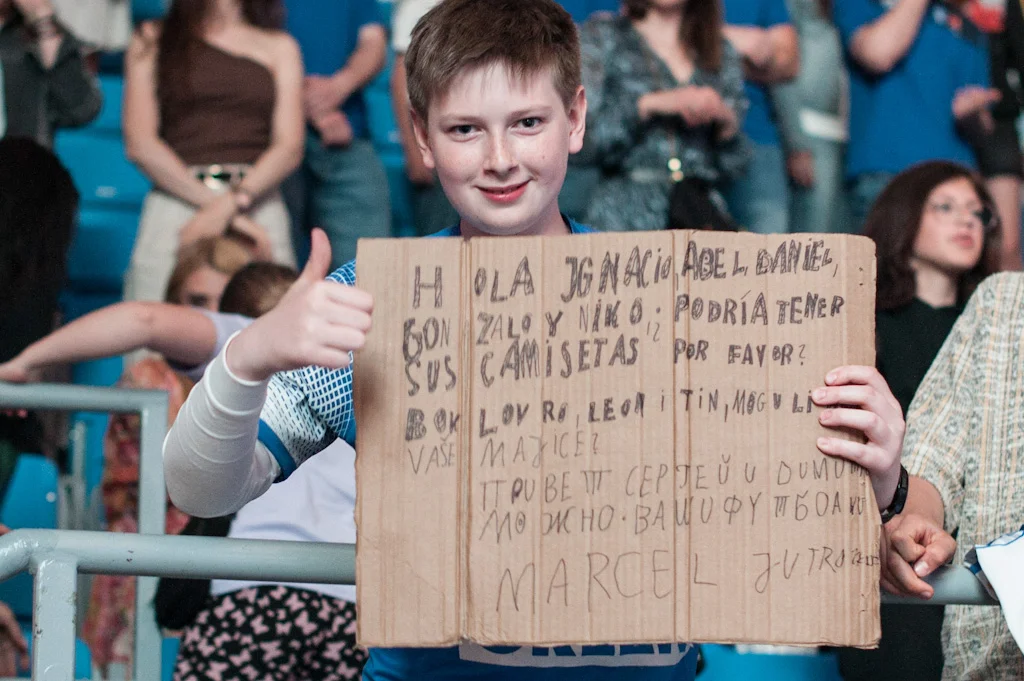 HOLA IGNACIO, ABEL, DANIEL,
GONZALO Y NIKO. ¿PODRÍA TENER
SUS CAMISETAS POR FAVOR?
BOK LOVRO, LEON I TIN, MOGU LI
VAŠE MAJICE?
ПРИВЕТ СЕРГЕЙ И
МОЖНО ВАШИ
MARCEL